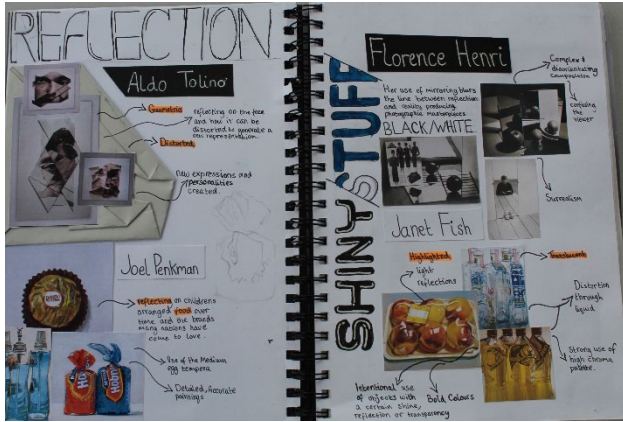 REFLECTION
Aldo Tolino
Geometric
reflecting on the face
and how it can be
distorted to generate a
representation.
Distorted
new expressions and
personalities
created.
Joel Penkman
reflecting on childrens
arranged food over
time and the brands
many nations have
come to love.
Use of the Medium
egg tempera
Detailed, Accurate
paintings
SHINY STUFF
Florence Henri
Her use of mirroring blurs
the line between reflection
and reality, producing
photographic masterpieces
BLACK/WHITE
Complex &
disorientating
composition
confusing
the
viewer
Surrealism
Janet Fish
Highlighted
light
reflections
Translucent
Distortion
through
liquid
Strong use of
high chroma
palette.
Intentional use
of objects with
a certain shine,
reflection or transparency
Bold Colours